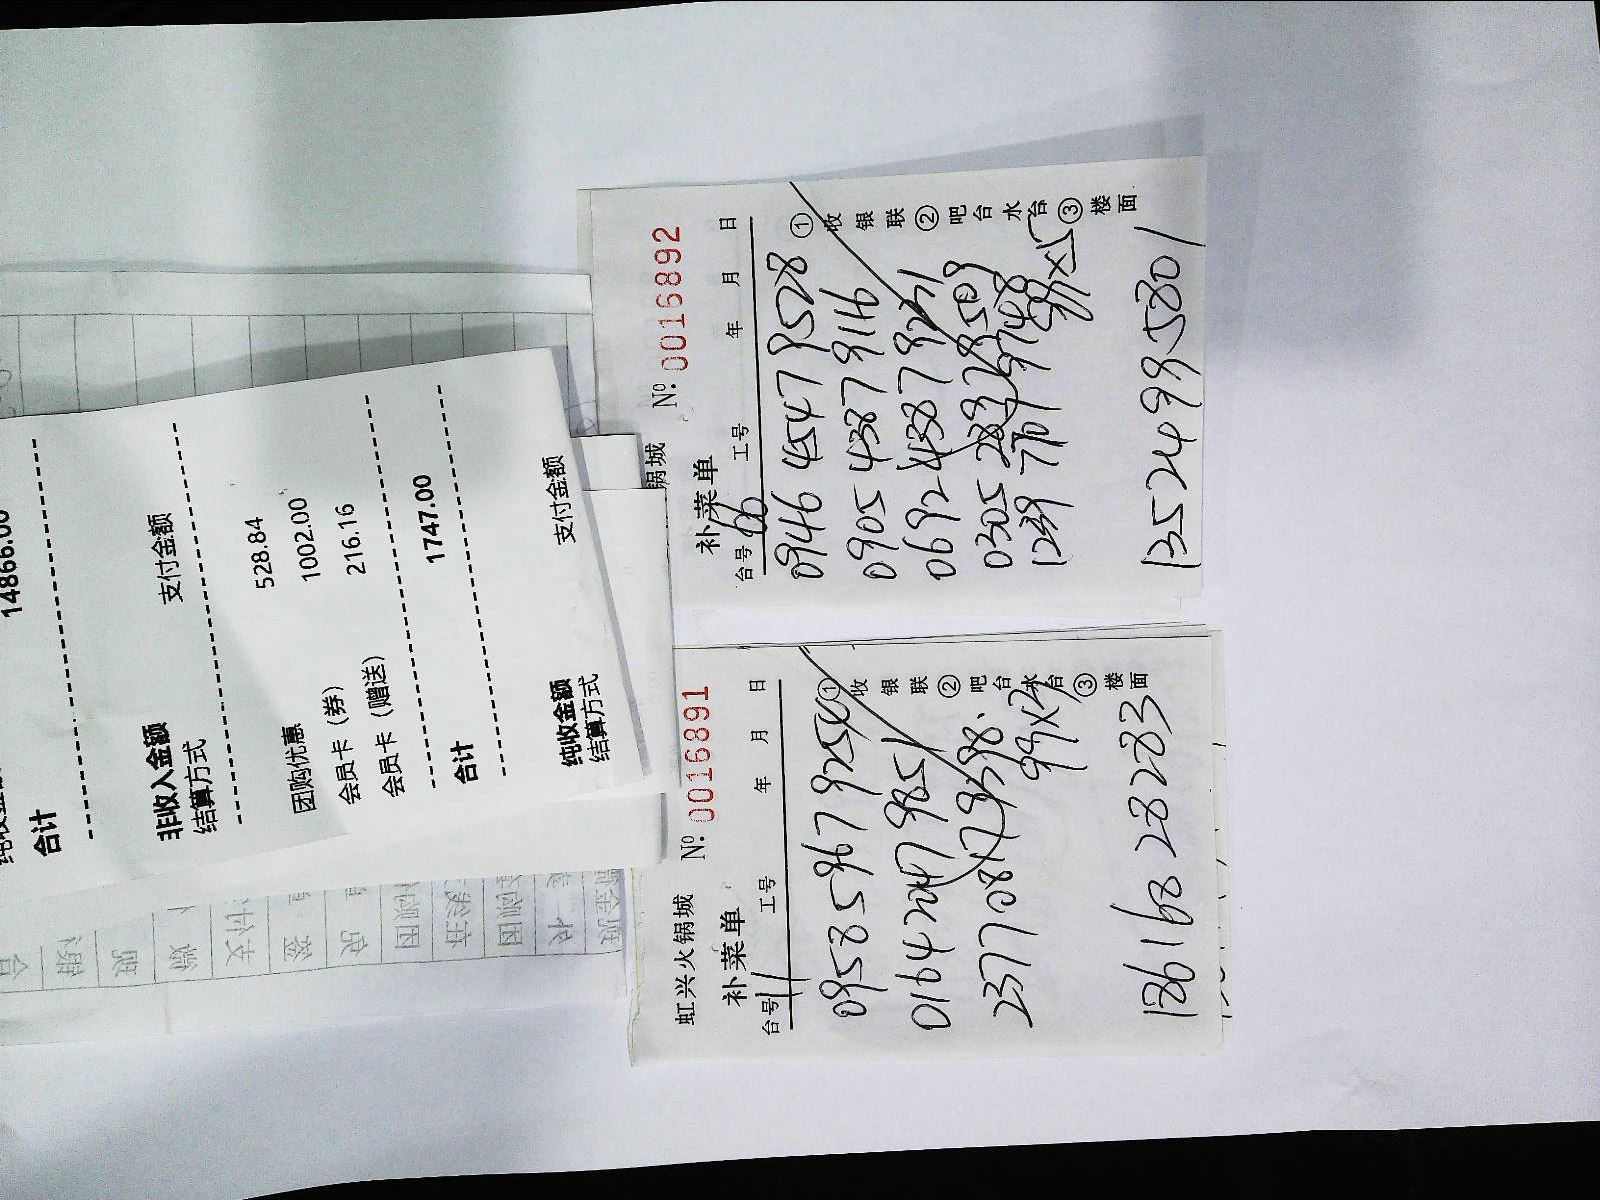 14866.00
合计
非收入金额
结算方式 支付金额
团购优惠 528.84
会员卡（券） 1002.00
会员卡（赠送） 216.16
合计 1747.00
纯收金额
结算方式 支付金额
虹兴火锅城 № 0016891
补菜单
台号 11 工号 年 月 日
0958 5967 9254
0164 2047 9851
2377 0847 9398
99x3
136168 28283
①收银联②吧台水台③楼面
锅城 № 0016892
补菜单
台号 66 工号 年 月 日
0946 4547 9528
0905 4387 9116
0692 4387 9271
0305 2837 9509
1239 7767 9748
99x5
13524995801
①收银联②吧台水台③楼面